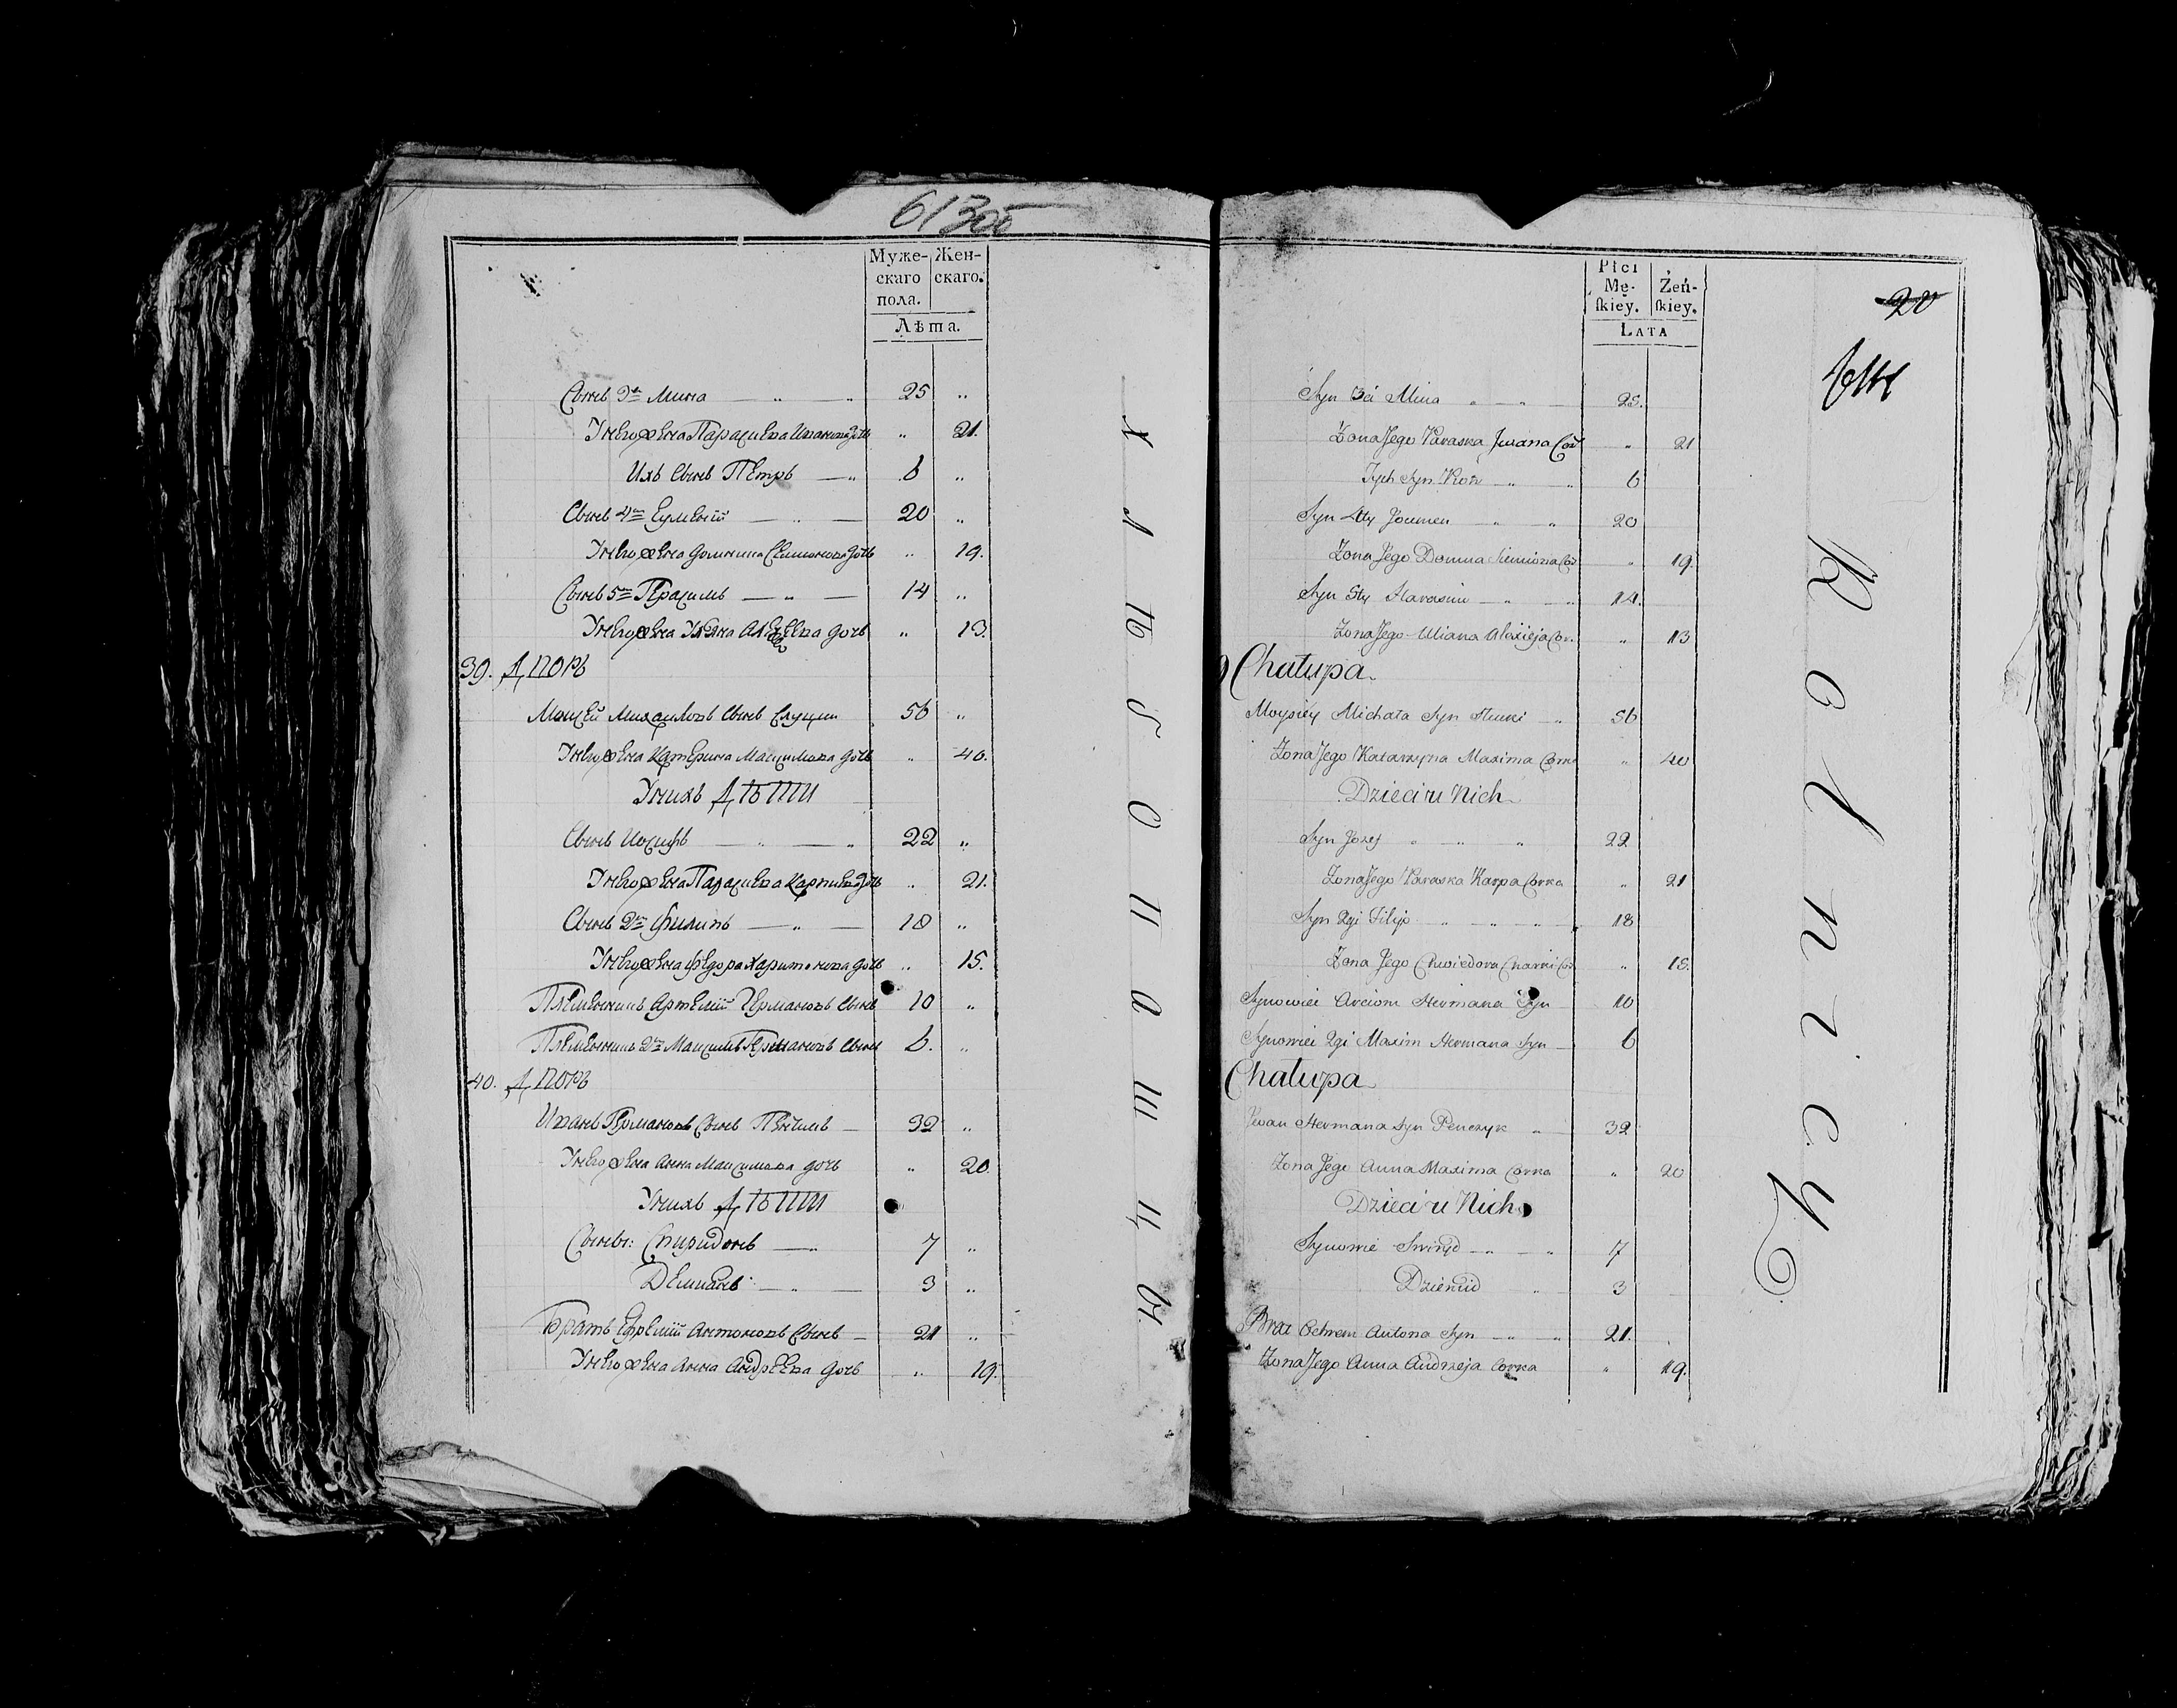 613об
Муже-
скаго
пола.
Жен-
скаго.
Лѣта.
Сынъ 3й Мина 25 "
У него жена Парасцева Иванова дочь " 21.
Ихъ сынъ Петръ 6 "
Сынъ 4й 20 "
У него жена Домникиа Семионова дочь " 19.
Сынъ 5й 14 "
У него жена Уляна Алексеева дочь " 13.
39. Дворъ
Моисей Михайловъ сынъ Слуцки 56 "
У него жена Катерина Максимова дочь " 40.
У нихъ дѣти
Сынъ Иосифъ 22 "
У него жена Парасцева Карпиева дочь " 21.
Сынъ 2й Филипъ 18 "
У него жена Федора Харитонова дочь " 15.
Племенникъ Артемий Германовъ сынъ 10 "
Племенникъ 2й Максимъ Германовъ сынъ 6. "
40. Дворъ
Иванъ Германовъ сынъ 32 "
У него жена Анна Максимова дочь " 20.
У нихъ дѣти
Сыны: Спиридонъ 7 "
3 "
Братъ Ефремий Антоновъ сынъ 21 "
У него жена Анна Андреева дочь " 19.
Хлѣбопашцы.
Płci
Mę-
skiey.
Żeń-
skiey.
Lata
20
Syn 3ci Mina 25.
Żona Jego Paraska Jwana Cor " 21
Tych Syn 6
Syn 4ty 20
Żona Jego Domna Siemiona Cor " 19.
Syn 5ty Harasim 14.
Żona Jego Uliana Alexieja Cor. " 13
Chałupa
Moysiey Michała Syn Słucki 56
Żona Jego Katarzyna Maxima Corka " 40
Dzieci u Nich
Syn Jozef 22
Żona Jego Paraska Karpa Corka " 21
Syn 2gi Filip 18
Żona Jego Chwiedora Cor " 15.
Synowiec Arciom Hermana Syn 10
Synowiec 2gi Maxim Hermana Syn 6
Chałupa
Jwan Hermana Syn Penczyk 32
Żona Jego Anna Maxima Corka " 20
Dzieci u Nich
Synowie Swiryd 7
Dziemid 3
Brat Ochrem Antona Syn 21.
Żona Jego Anna Andrzeja Corka " 19.
Rolnicy